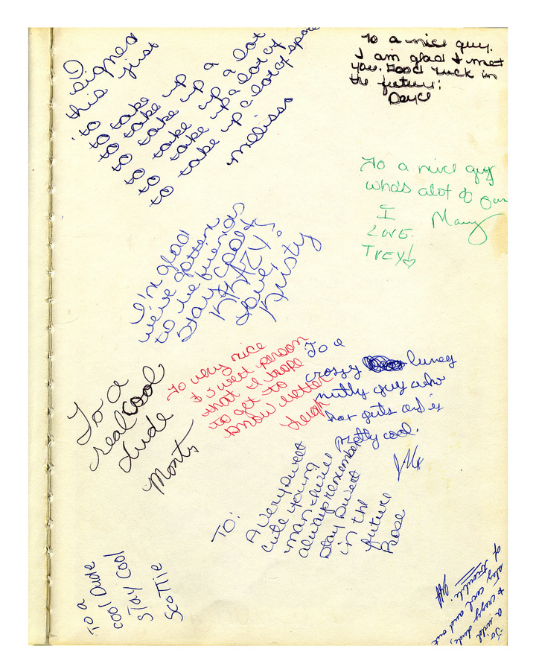 I
signed
this just
to take up a lot
to take up a lot
to take up a lot of
to take up a lot of space
melissa
To a nice guy.
I am glad I met
you. Good luck in
the future!
To a nice guy
whos alot of fun
I
LOVE
TREY!
I'm glad
we've gotten
to be friends
Stay cool &
KRAZY!
Love,
Dusty
To a
real cool
dude
Monty
To very nice
& sweet person
that I hope
to get to
know better
To a
crazy luney
nutty guy who
has guts and is
pretty cool.
To:
A very sweet
cute young
man who i'll
always remember
Stay sweet
in the
future
To a
Cool Dude
Stay Cool
Scottie
To
a wild
& crazy dude,
stay cool and out
of trouble.